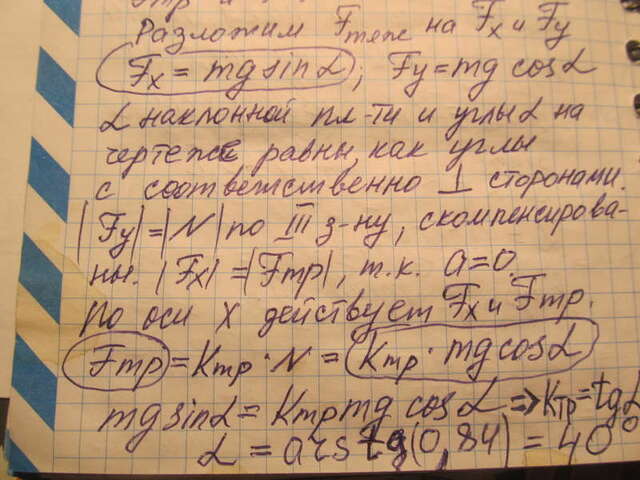 Разложим Fтяж на Fx и Fy
Fx = mg sinα; Fy = mg cosα
α наклонной пл-ти и углы α на
чертеже равны как углы
с соответственно ⊥ сторонами.
|Fy| = |N| по III з-ну, скомпенсирова-
ны. |Fx| = |Fтр|, т.к. a=0
По оси X действует Fx и Fтр.
Fтр = Kтр · N = Kтр · mg cosα
mg sinα = Kтр mg cosα => Kтр = tgα
α = arctg(0,84) = 40°